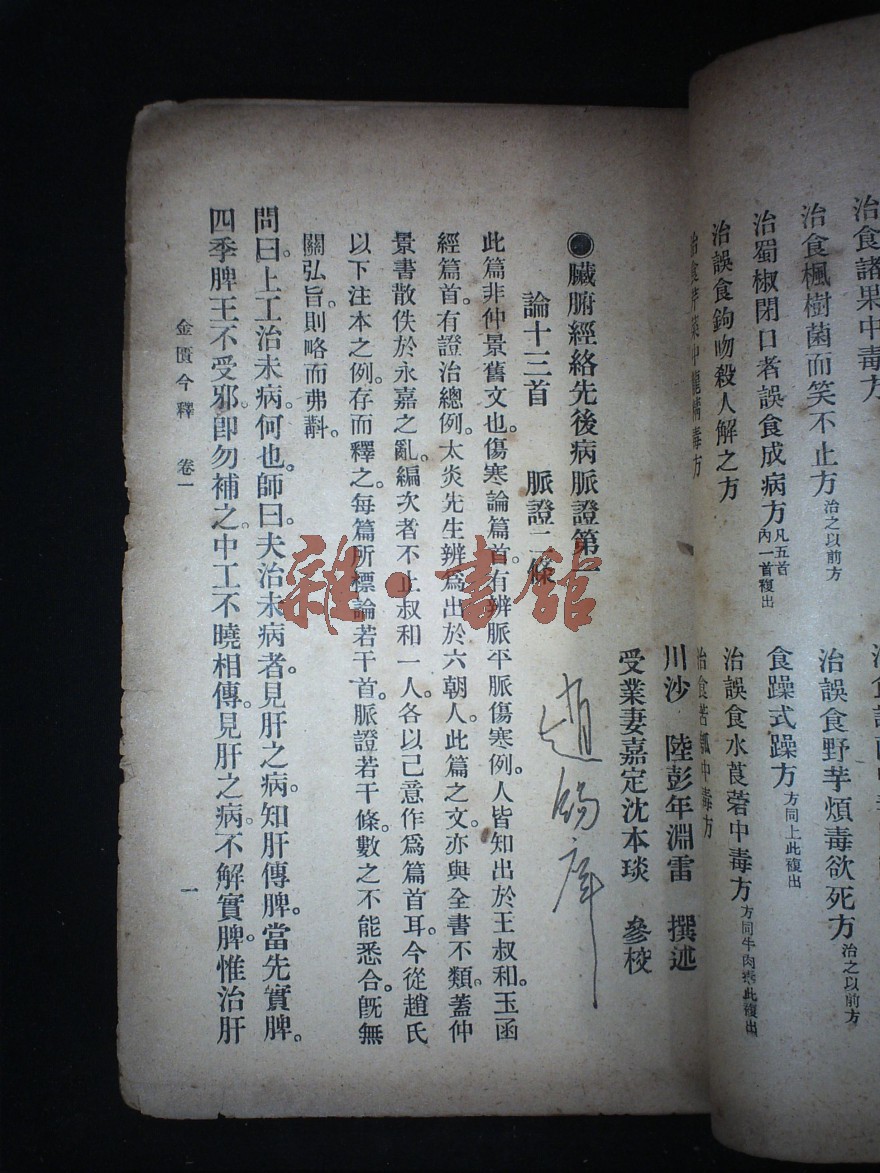 治食諸果中毒方
治食楓樹菌而笑不止方 治之以前方
治食野芋煩毒欲死方 治之以前方
治蜀椒閉口者誤食成病方 凡五首內一首複出
食躁式躁方 方同上此複出
治誤食鉤吻殺人解之方
治誤食水莨菪中毒方 方同牛肉此複出
治食苦瓠中毒方
川沙 陸彭年淵雷 撰述
受業妻嘉定沈本琰 參校
●臟腑經絡先後病脈證第一
論十三首 脈證二條
此篇非仲景舊文也。傷寒論篇首。有辨脈平脈傷寒例。人皆知出於王叔和。玉函
經篇首。有證治總例。太炎先生辨爲出於六朝人。此篇之文。亦與全書不類。蓋仲
景書散佚於永嘉之亂。編次者不止叔和一人。各以己意作爲篇首耳。今從趙氏
以下注本之例。存而釋之。每篇所標論若干首。脈證若干條。數之不能悉合。旣無
關弘旨。則略而弗斠。
問曰。上工治未病。何也。師曰。夫治未病者。見肝之病。知肝傳脾。當先實脾。
四季脾王不受邪。卽勿補之。中工不曉相傳。見肝之病。不解實脾。惟治肝
金匱今釋 卷一
一
雜·書館